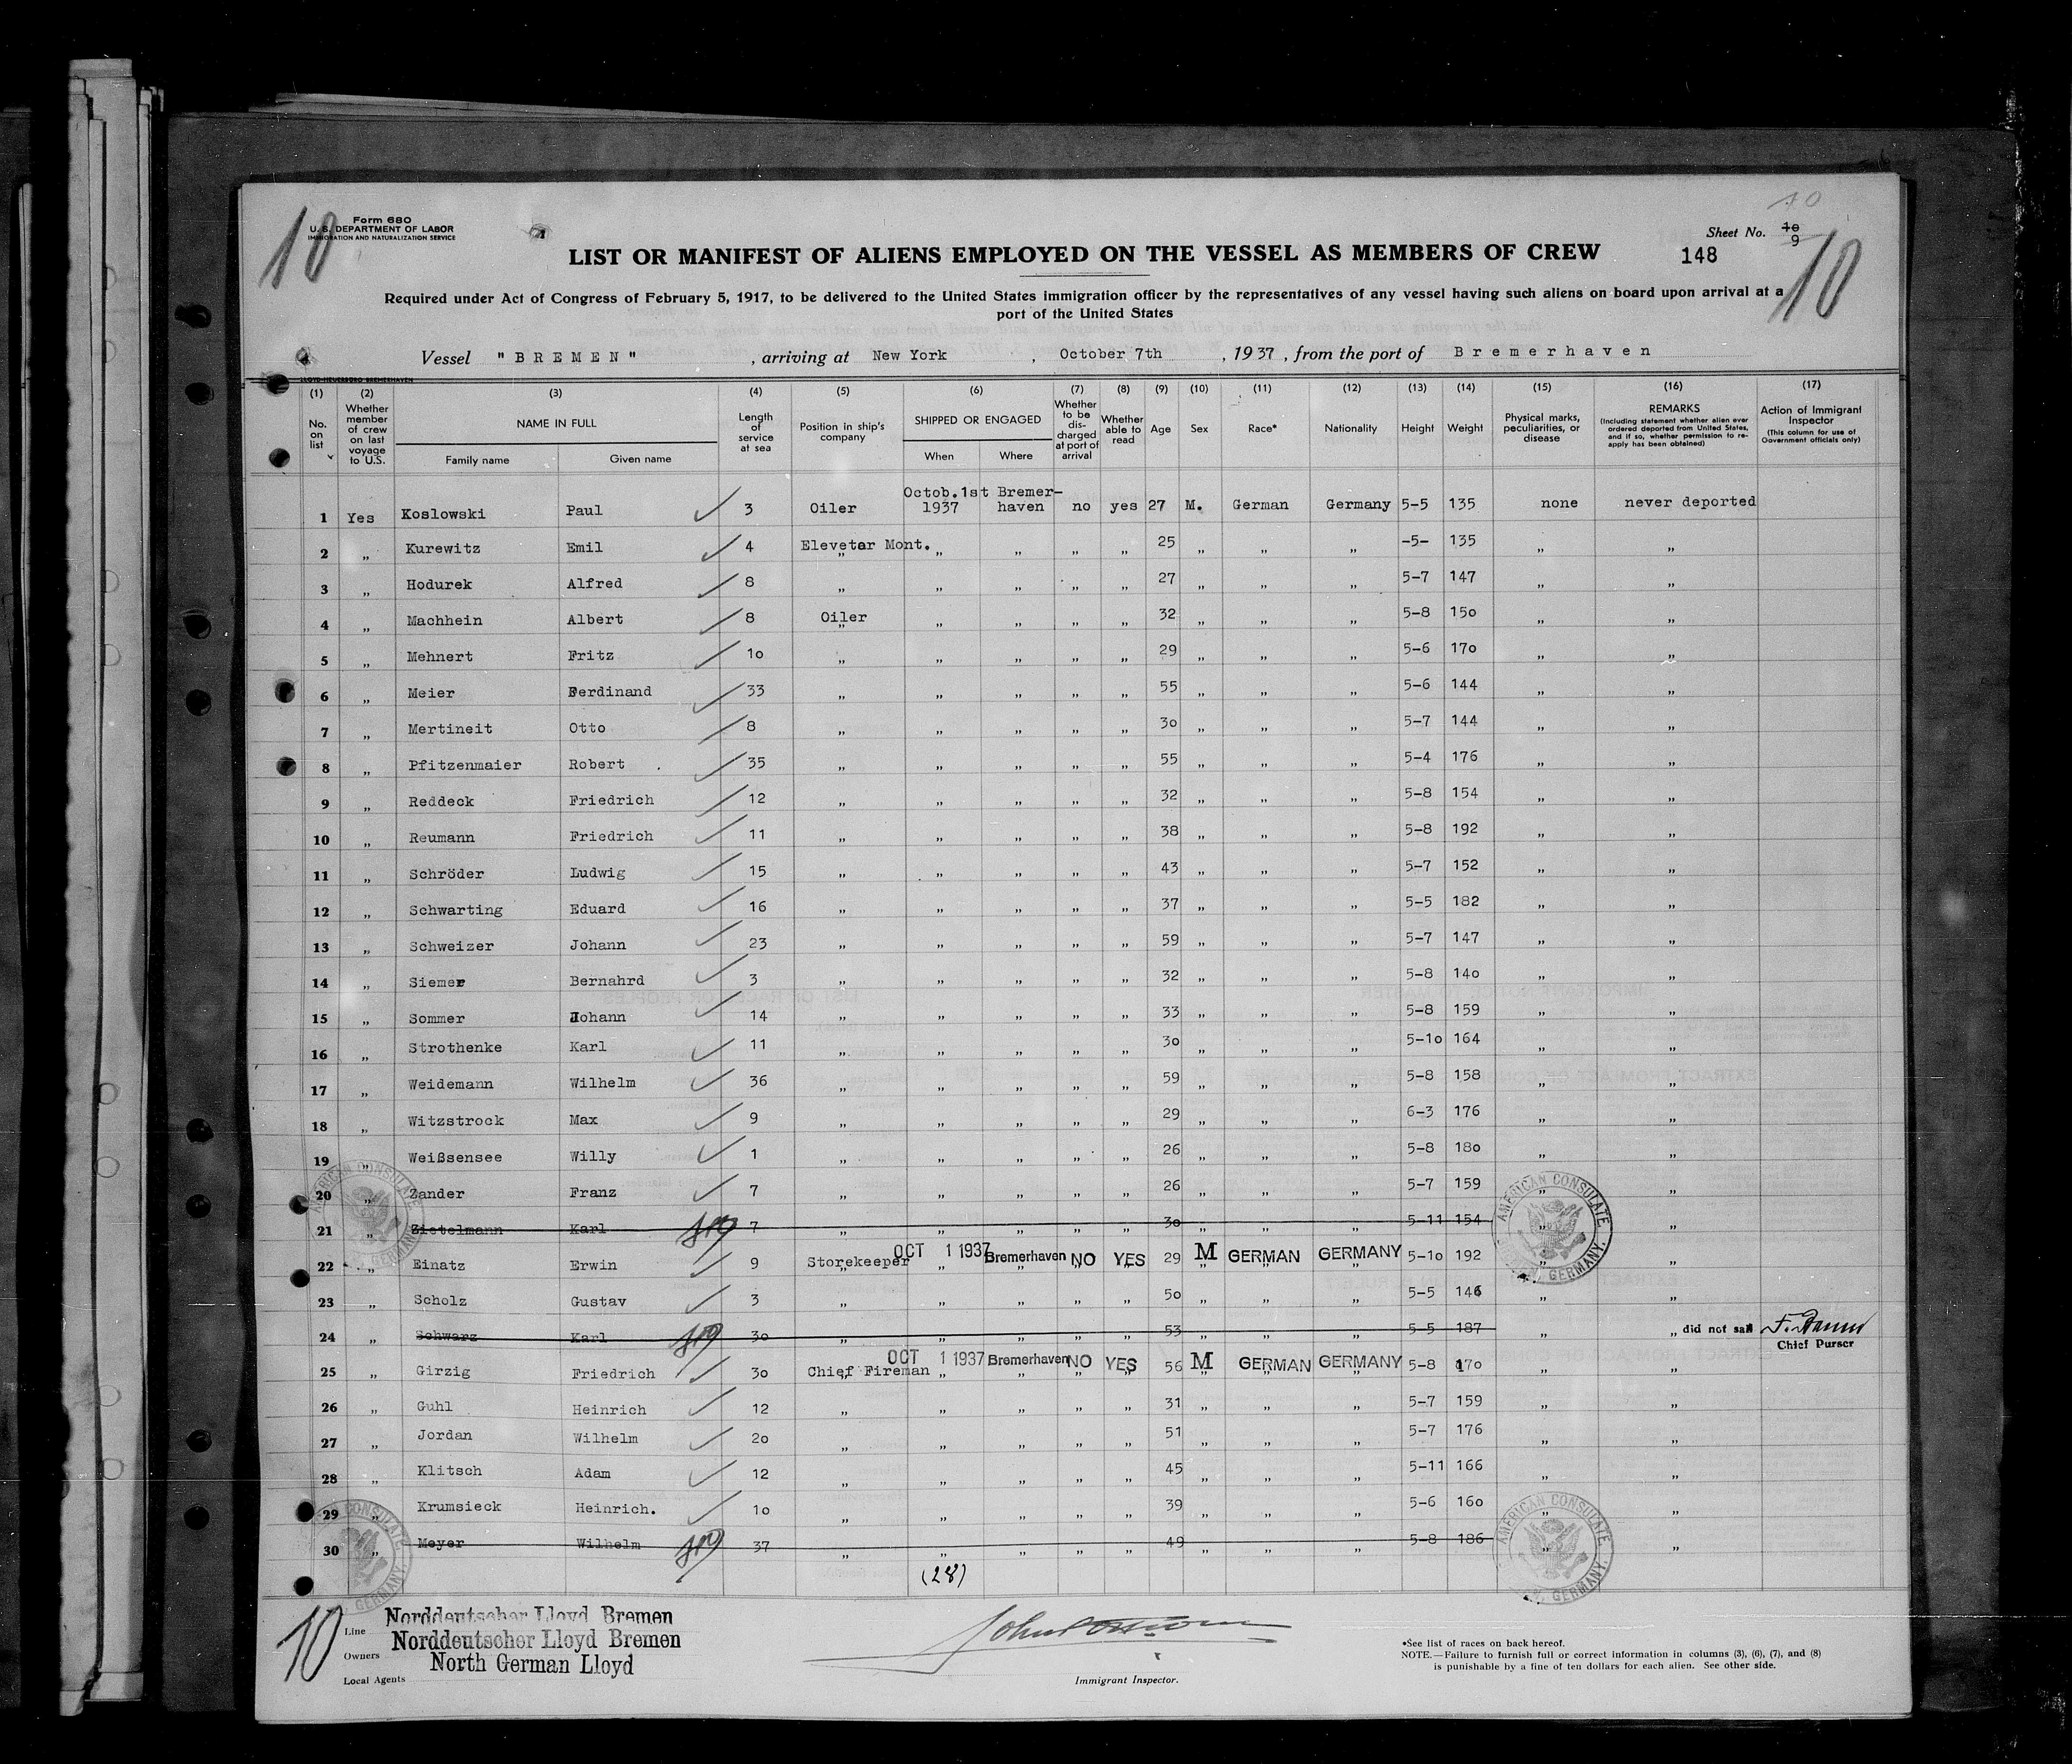 10
Form 680
U. S. DEPARTMENT OF LABOR
IMMIGRATION AND NATURALIZATION SERVICE
10
Sheet No. 10
9
10
LIST OR MANIFEST OF ALIENS EMPLOYED ON THE VESSEL AS MEMBERS OF CREW
148
Required under Act of Congress of February 5, 1917, to be delivered to the United States immigration officer by the representatives of any vessel having such aliens on board upon arrival at a
port of the United States
Vessel "BREMEN", arriving at New York, October 7th, 1937, from the port of Bremerhaven
(1) (2) (3) (4) (5) (6) (7) (8) (9) (10) (11) (12) (13) (14) (15) (16) (17)
No. on list
Whether member of crew on last voyage to U.S.
NAME IN FULL
Family name Given name
Length of service at sea
Position in ship's company
SHIPPED OR ENGAGED
When Where
Whether to be discharged at port of arrival
Whether able to read
Age
Sex
Race*
Nationality
Height
Weight
Physical marks, peculiarities, or disease
REMARKS
(Including statement whether alien ever ordered deported from United States, and if so, whether permission to re-apply has been obtained)
Action of Immigrant Inspector
(This column for use of Government officials only)
1 Yes Koslowski Paul 3 Oiler Octob.1st 1937 Bremer-haven no yes 27 M. German Germany 5-5 135 none never deported
2 „ Kurewitz Emil 4 Elevetor Mont. „ „ „ „ 25 „ „ „ -5- 135 „ „
3 „ Hodurek Alfred 8 „ „ „ „ „ 27 „ „ „ 5-7 147 „ „
4 „ Machhein Albert 8 Oiler „ „ „ „ 32 „ „ „ 5-8 150 „ „
5 „ Mehnert Fritz 10 „ „ „ „ „ 29 „ „ „ 5-6 170 „ „
6 „ Meier Ferdinand 33 „ „ „ „ „ 55 „ „ „ 5-6 144 „ „
7 „ Mertineit Otto 8 „ „ „ „ „ 30 „ „ „ 5-7 144 „ „
8 „ Pfitzenmaier Robert 35 „ „ „ „ „ 55 „ „ „ 5-4 176 „ „
9 „ Reddeck Friedrich 12 „ „ „ „ „ 32 „ „ „ 5-8 154 „ „
10 „ Reumann Friedrich 11 „ „ „ „ „ 38 „ „ „ 5-8 192 „ „
11 „ Schröder Ludwig 15 „ „ „ „ „ 43 „ „ „ 5-7 152 „ „
12 „ Schwarting Eduard 16 „ „ „ „ „ 37 „ „ „ 5-5 182 „ „
13 „ Schweizer Johann 23 „ „ „ „ „ 59 „ „ „ 5-7 147 „ „
14 „ Siemer Bernahrd 3 „ „ „ „ „ 32 „ „ „ 5-8 140 „ „
15 „ Sommer Johann 14 „ „ „ „ „ 33 „ „ „ 5-8 159 „ „
16 „ Strothenke Karl 11 „ „ „ „ „ 30 „ „ „ 5-10 164 „ „
17 „ Weidemann Wilhelm 36 „ „ „ „ „ 59 „ „ „ 5-8 158 „ „
18 „ Witzstrock Max 9 „ „ „ „ „ 29 „ „ „ 6-3 176 „ „
19 „ Weißensee Willy 1 „ „ „ „ „ 26 „ „ „ 5-8 180 „ „
20 „ Zander Franz 7 „ „ „ „ „ 26 „ „ „ 5-7 159 „ „
21 „ Zietelmann Karl 7 „ „ „ „ „ 30 „ „ „ 5-11 154 „ „
22 „ Einatz Erwin 9 Storekeeper OCT 1 1937 Bremerhaven NO YES 29 M GERMAN GERMANY 5-10 192 „
23 „ Scholz Gustav 3 „ „ „ „ „ 50 „ „ „ 5-5 146 „ „
24 „ Schwarz Karl 30 „ „ „ „ „ 53 „ „ „ 5-5 187 „ „ did not sail
Chief Purser
25 „ Girzig Friedrich 30 Chief Fireman OCT 1 1937 Bremerhaven NO YES 56 M GERMAN GERMANY 5-8 170 „ „
26 „ Guhl Heinrich 12 „ „ „ „ „ 31 „ „ „ 5-7 159 „ „
27 „ Jordan Wilhelm 20 „ „ „ „ „ 51 „ „ „ 5-7 176 „ „
28 „ Klitsch Adam 12 „ „ „ „ „ 45 „ „ „ 5-11 166 „ „
29 „ Krumsieck Heinrich. 10 „ „ „ „ „ 39 „ „ „ 5-6 160 „ „
30 „ Meyer Wilhelm 37 „ „ „ „ „ 49 „ „ „ 5-8 186 „ „
(28)
AMERICAN CONSULATE
GERMANY.
10
Norddeutscher Lloyd Bremen
Line
Norddeutscher Lloyd Bremen
Owners
North German Lloyd
Local Agents
Immigrant Inspector.
*See list of races on back hereof.
NOTE.—Failure to furnish full or correct information in columns (3), (6), (7), and (8)
is punishable by a fine of ten dollars for each alien. See other side.